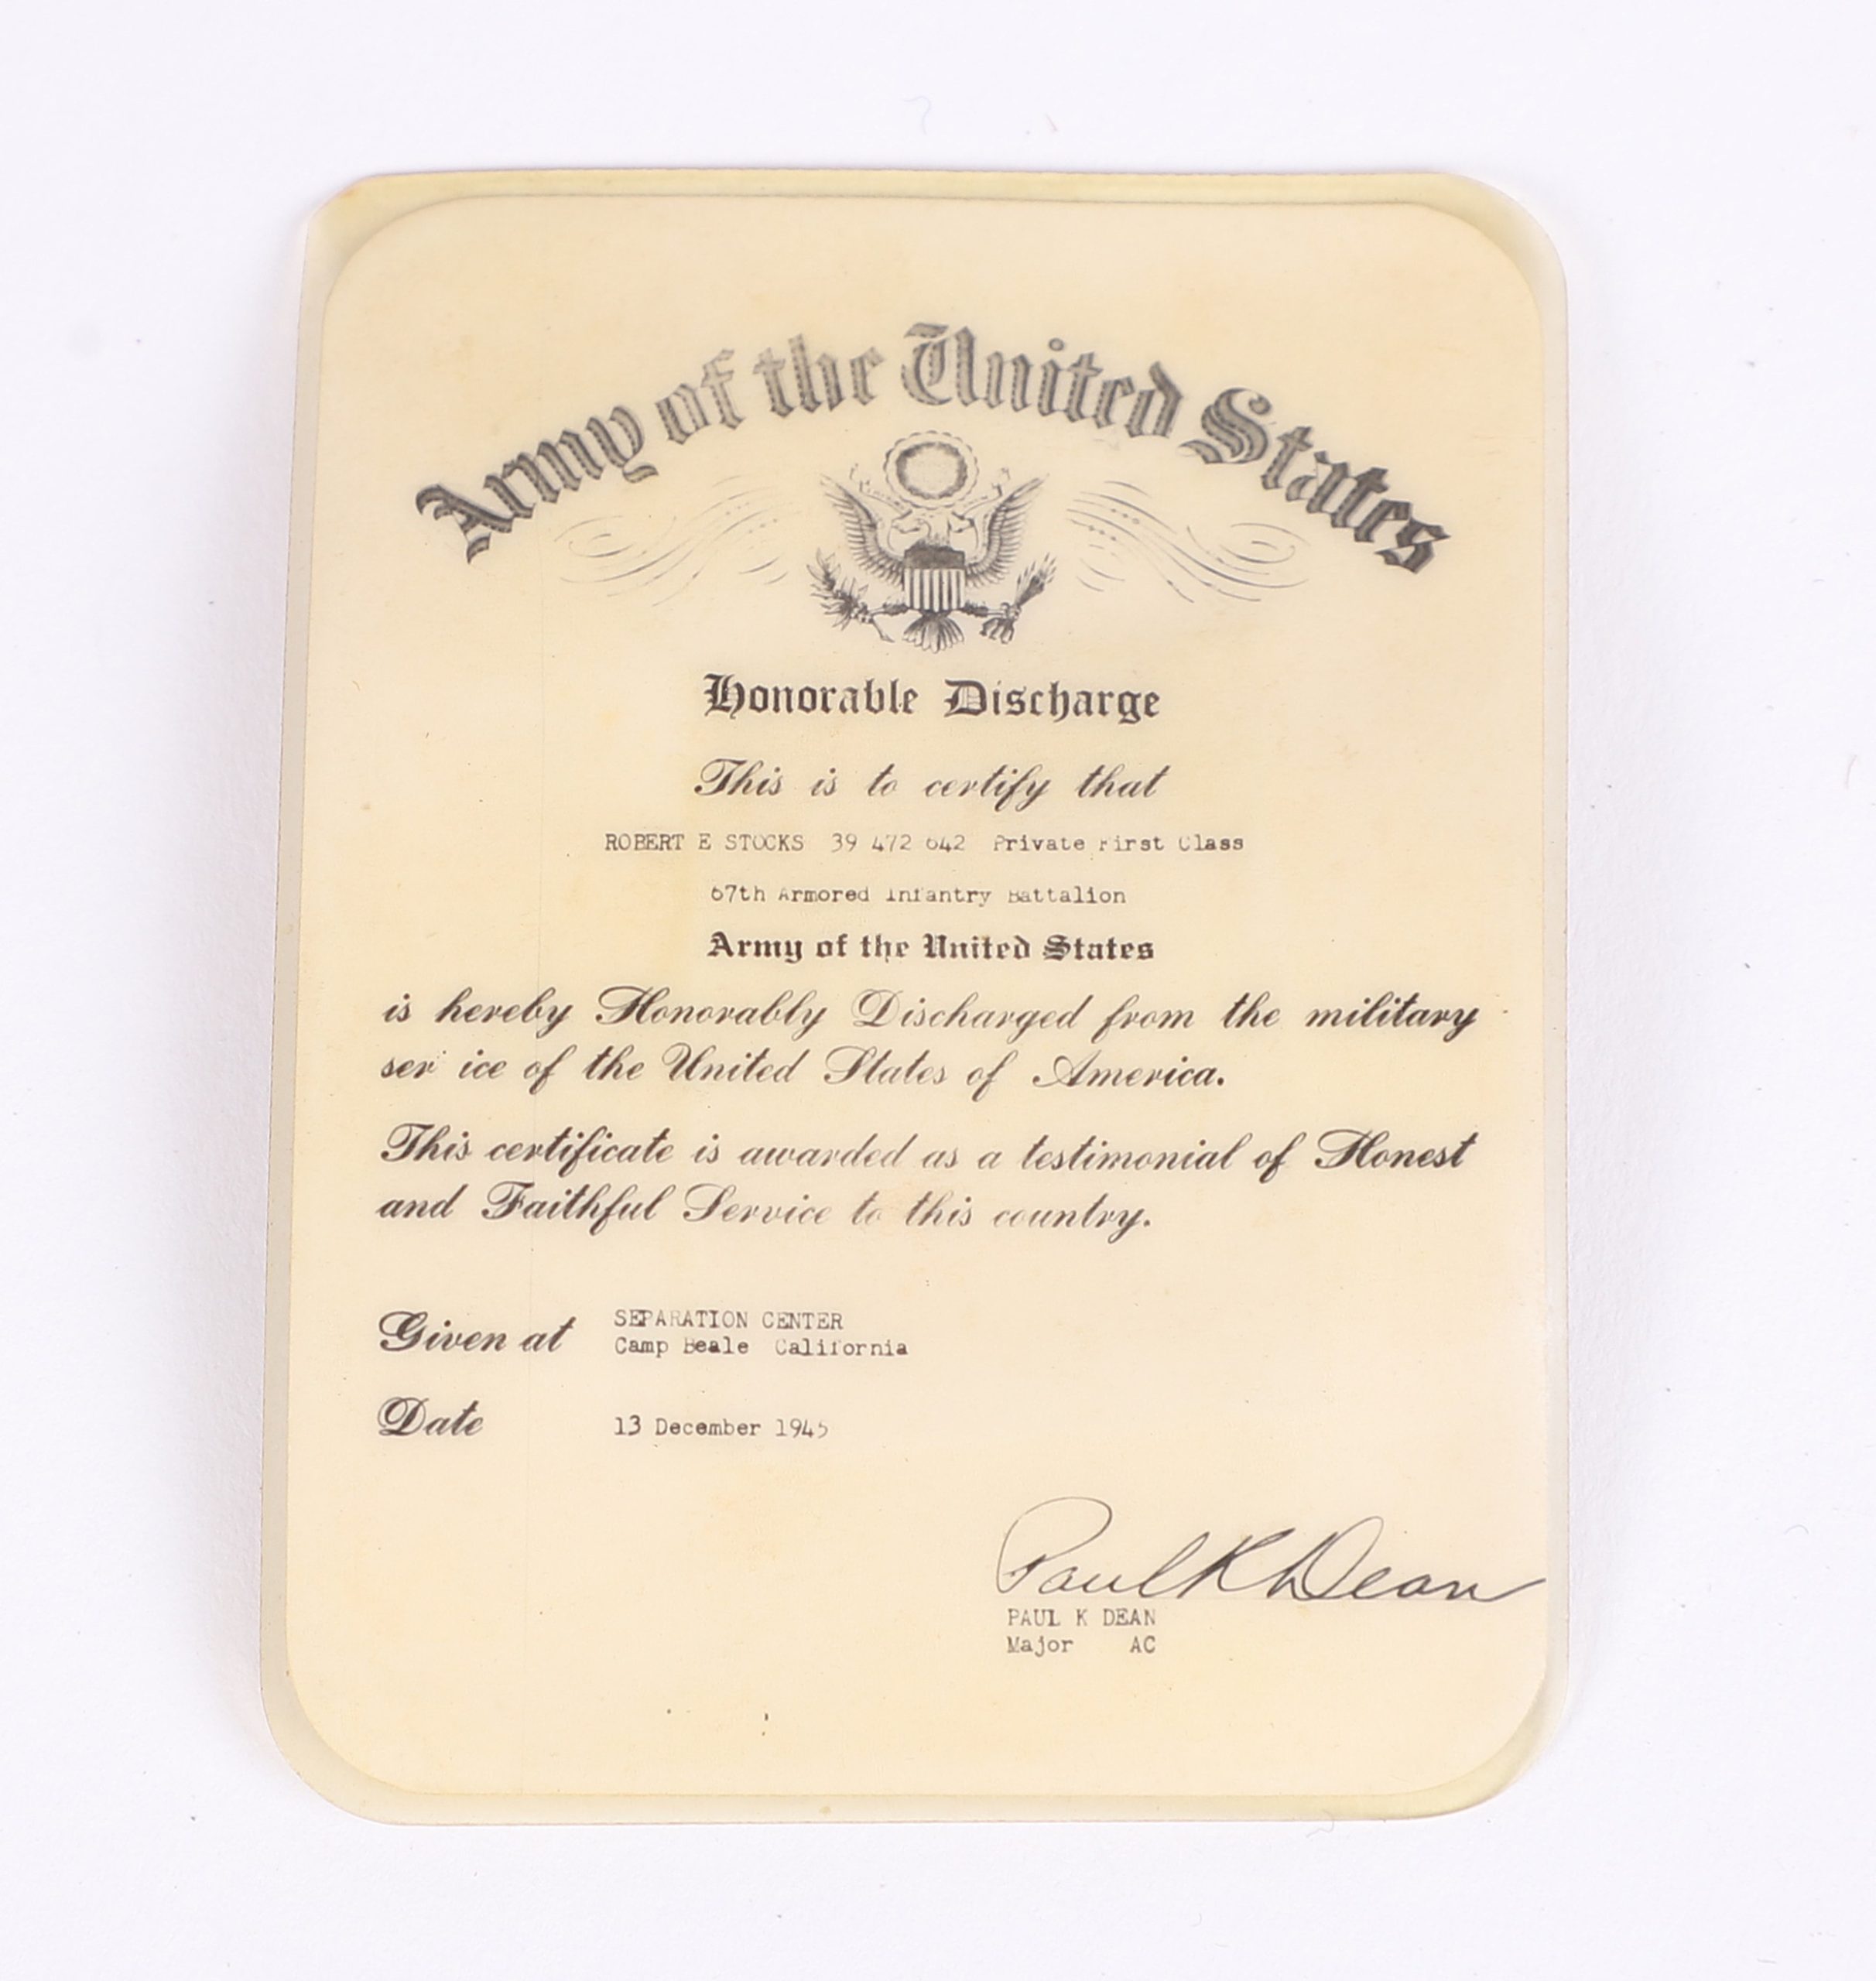 Army of the United States
Honorable Discharge
This is to certify that
ROBERT E STOCKS 39 472 642 Private First Class
67th Armored Infantry Battalion
Army of the United States
is hereby Honorably Discharged from the military
ser ice of the United States of America.
This certificate is awarded as a testimonial of Honest
and Faithful Service to this country.
Given at SEPARATION CENTER
Camp Beale California
Date 13 December 1945
Paul K Dean
PAUL K DEAN
Major AC